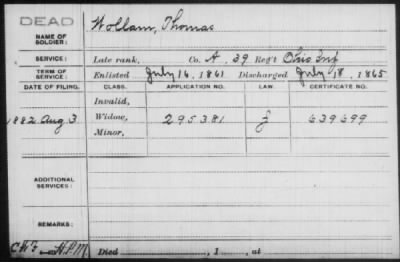 DEAD
NAME OF SOLDIER: Wollam, Thomas
SERVICE: Late rank, Co. A, 39 Reg't Ohio Inf
TERM OF SERVICE: Enlisted July 16, 1861 Discharged July 18, 1865
DATE OF FILING. CLASS. APPLICATION NO. LAW. CERTIFICATE NO.
Invalid,
1882 Aug 3 Widow, 295381 639699
Minor,
ADDITIONAL SERVICES:
REMARKS:
Died , 1 , at